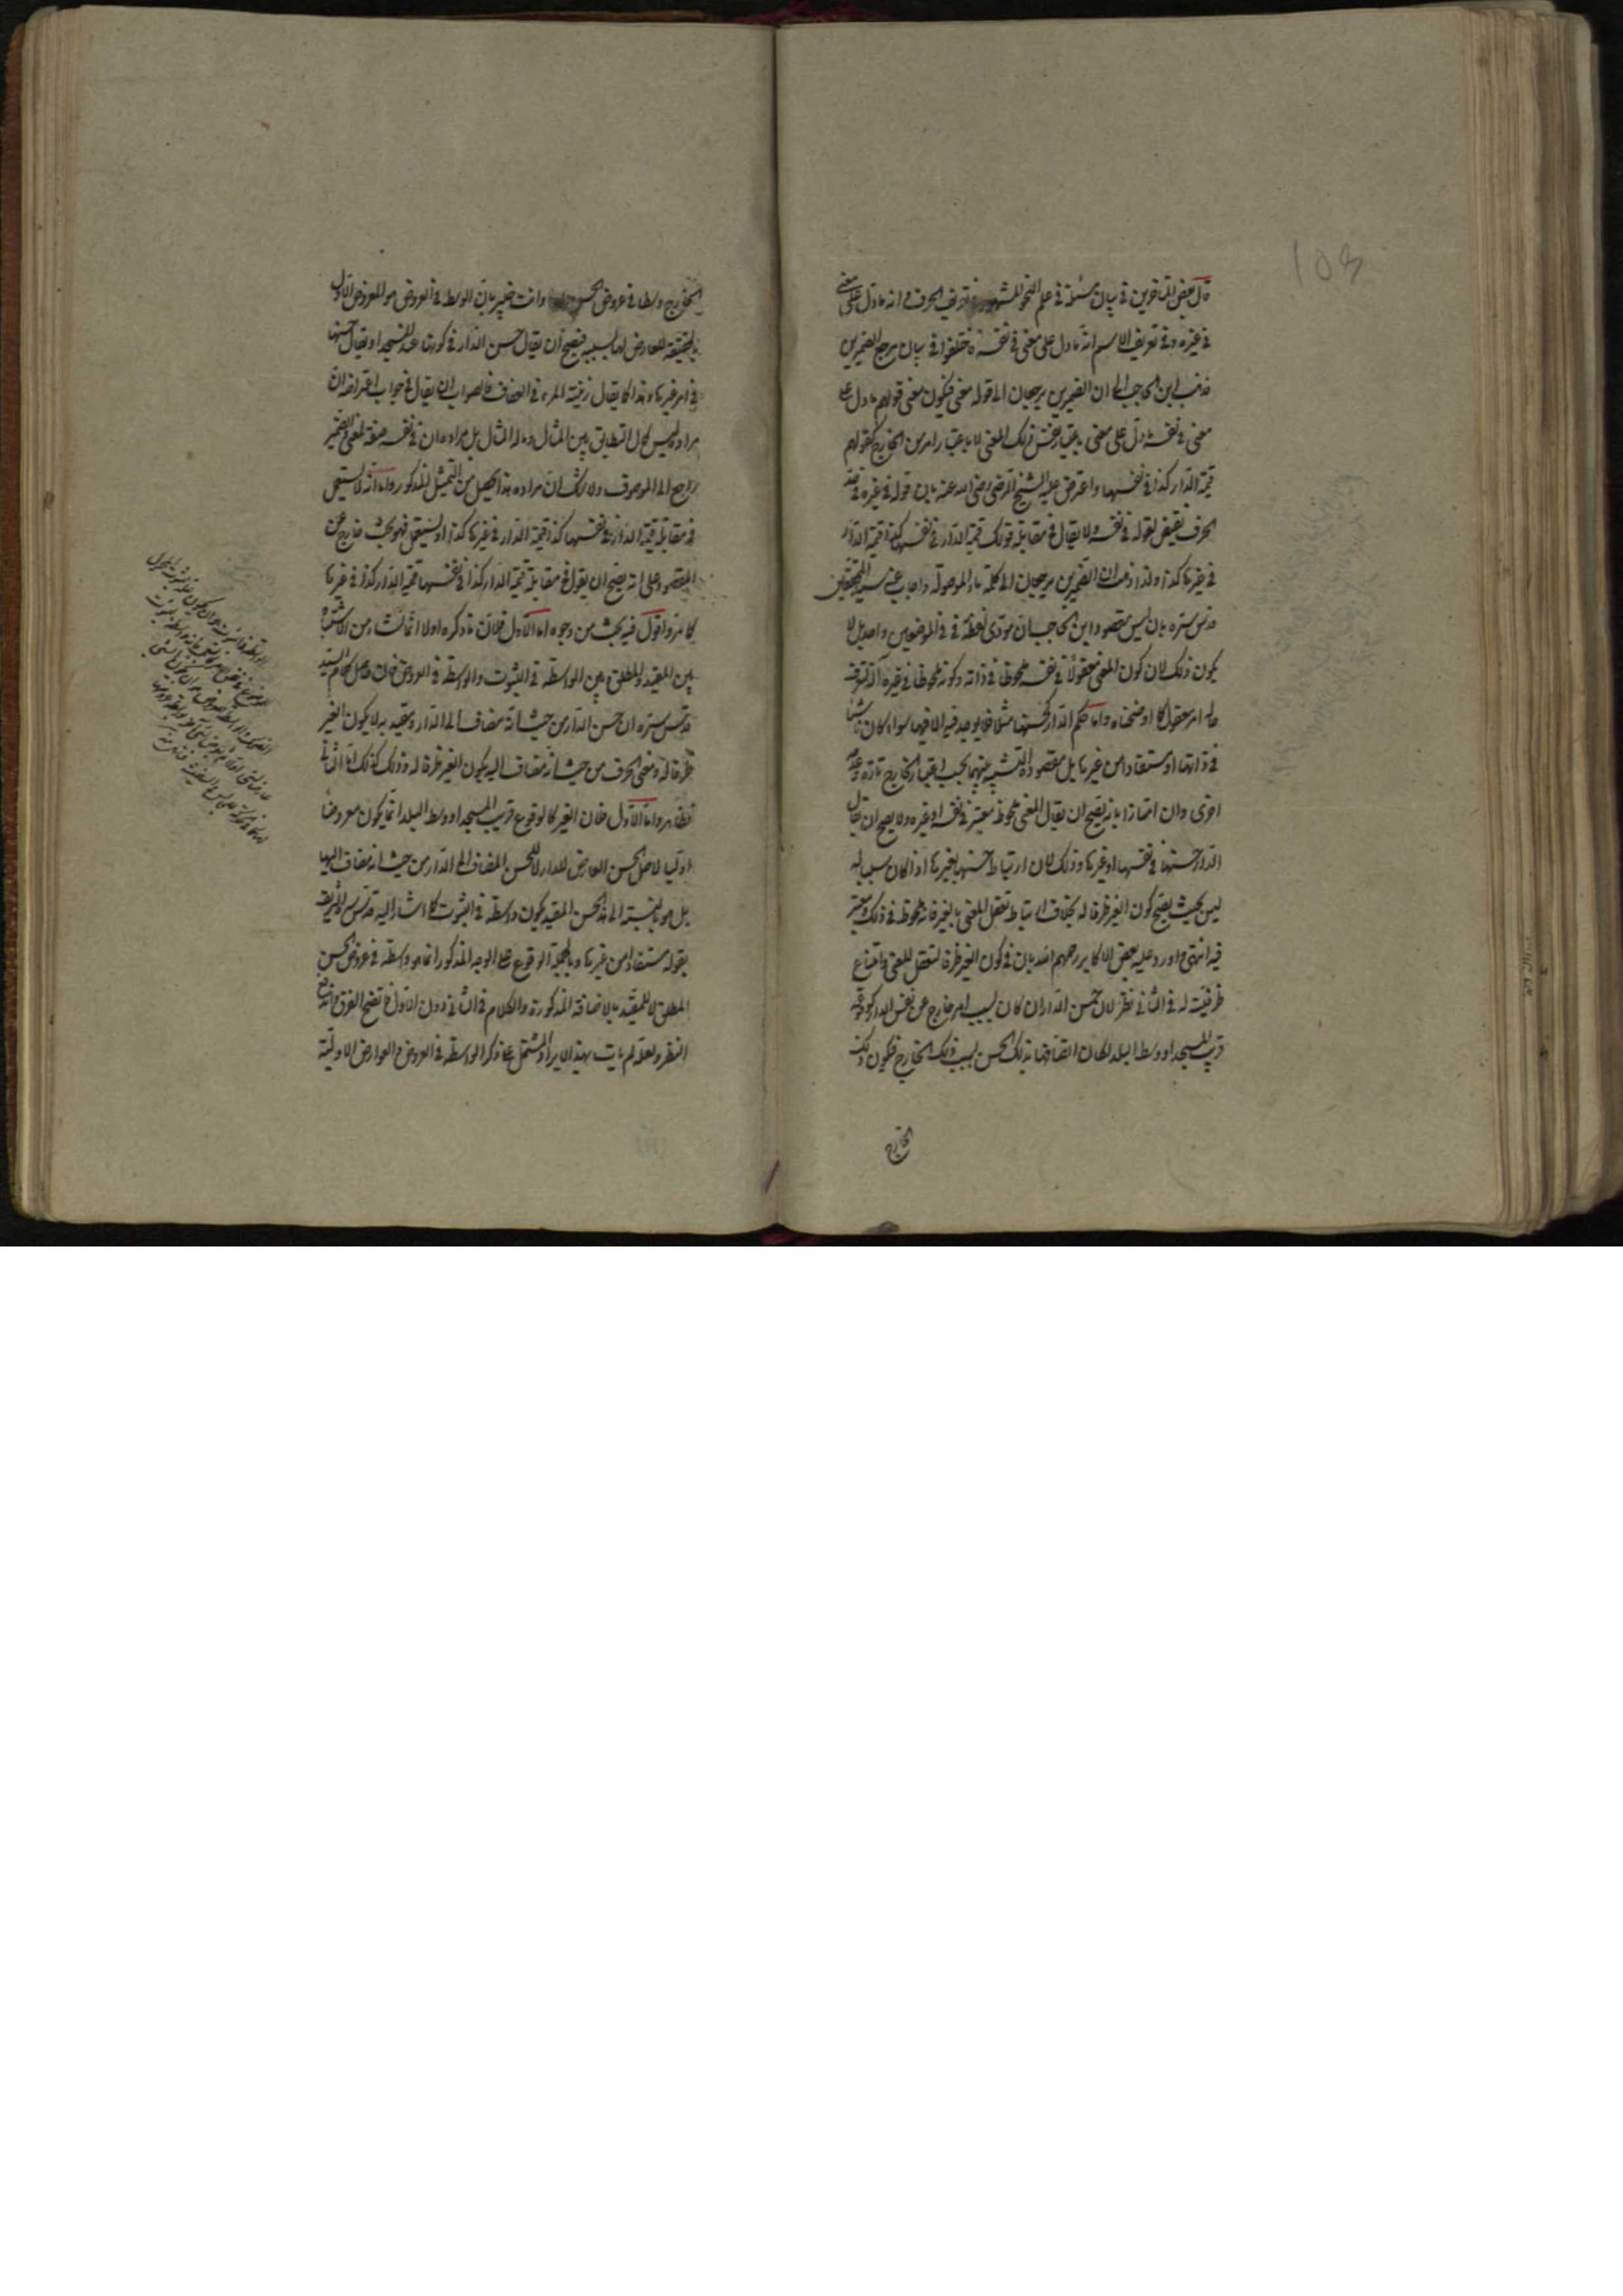 قال بعض المتأخرين في بيان مسئلة في علم النحو المشهور في تعريف الحرف انه ما دل على معنى
في غيره وفي تعريف الاسم انه ما دل على معنى في نفسه فاختلفوا في بيان مرجع الضميرين
فذهب ابن الحاجب الى ان الضميرين يرجعان الى قوله معنى فيكون معنى قولهم ما دل على
معنى في نفسه ما دل على معنى باعتبار نفس ذلك المعنى لا باعتبار امر من الخارج كقولهم
قيمة الدار كذا في نفسها واعترض عليه الشيخ الرضي رضي الله عنه بان قوله في غيره في حد
الحرف نقيض لقوله في نفسه ولا يقال في مقابلة قولك قيمة الدار في نفسها كذا قيمة الدار
في غيرها كذا ولذا ذهب ان الضميرين يرجعان الى كلمة ماء الموصولة واجاب عنه سيد المحققين
قدس سره بان ليس مقصود ابن الحاجب ان مؤدى لفظة في في الموضعين واحد بل لا
يكون ذلك لان كون المعنى معقولا في نفسه ملحوظا في ذاته وكونه ملحوظا في غيره آلة لتعرف
حاله امر معقول كما اوضحناه واما حكم الدار كحسنها مثلا فلا يوجد فيه الا فيها سواء كان ناشئا
في ذاتها او مستفادا من غيرها بل مقصوده التشبيه بينهما بحسب اعتبار الخارج تارة وعدمه
اخرى وان امتازا بانه يصح ان يقال المعنى ملحوظ معتبر في نفسه او غيره ولا يصح ان يقال
الدار حسنها في نفسها او غيرها وذلك لان ارتباط حسنها بغيرها اذا كان سببا له
ليس بحيث يصح كون الغير ظرفا له بخلاف ارتباط تعقل المعنى بالغير فانه ملحوظ في ذلك ومعتبر
فيه انتهى واورد عليه بعض الاكابر رحمهم الله بان في كون الغير ظرفا لتعقل المعنى وامتناع
ظرفيته له في الثاني نظر لان حسن الدار ان كان بسبب امر خارج عن نفس الدار كوقوعه
قرب المسجد او وسط البلد لكان اتصافها بذلك الحسن بسبب ذلك الخارج فيكون ذلك
الخارج
الخارج وسطا في عروض الحسن وانت خبير بان الوسط في العروض هو المعروض الاول
بالحقيقة للعارض لها بسببه فيصح ان يقال حسن الدار في كونها عند المسجد او يقال حسنها
في امر غيرها وهذا كما يقال زينة المرء في العفاف فالصواب ان يقال في جواب اعتراضه ان
مراده ليس كمال التطابق بين المثال وما له المثال بل مراده ان في نفسه صفة لمعنى والضمير
راجع الى الموصوف ولا شك ان مراده هذا يحصل من التمثيل المذكور واما انه لا يستعمل
في مقابلة قيمة الدار في نفسها كذا قيمة الدار في غيرها كذا او يستعمل فهو بحث خارج عن
المقصود على انه يصح ان يقول في مقابلة قيمة الدار كذا في نفسها قيمة الدار كذا في غيرها
كما مر واقول فيه بحث من وجوه اما الاول فلان ما ذكره اولا انما نشاء من الاشتباه
بين المقيد والمطلق وبين الواسطة في الثبوت والواسطة في العروض فان حاصل كلام السيد
قدس سره ان حسن الدار من حيث انه مضاف الى الدار ومقيد به لا يكون الغير
ظرفا له ومعنى الحرف من حيث انه مضاف اليه يكون الغير ظرفا له وذلك كذلك اما الثاني
فظاهر واما الاول فلان الغير كالوقوع قريب المسجد او وسط البلد انما يكون معروضا
اوليا لاصل الحسن العارض للدار لا للحسن المضاف الى الدار من حيث انه مضاف اليها
بل هو بالنسبة الى هذا الحسن المقيد يكون واسطة في الثبوت كما اشار اليه قدس سره الشريف
بقوله مستفادا من غيرها وبالجملة الوقوع على الوجه المذكور انما هو واسطة في عروض الحسن
المطلق لا للمقيد بالاضافة المذكورة والكلام في الثاني دون الاول فاتضح الفرق واندفع
النظر ولعله لم يأت بهذا الايراد المشتمل على ذكر الواسطة في العروض والعوارض الاولية